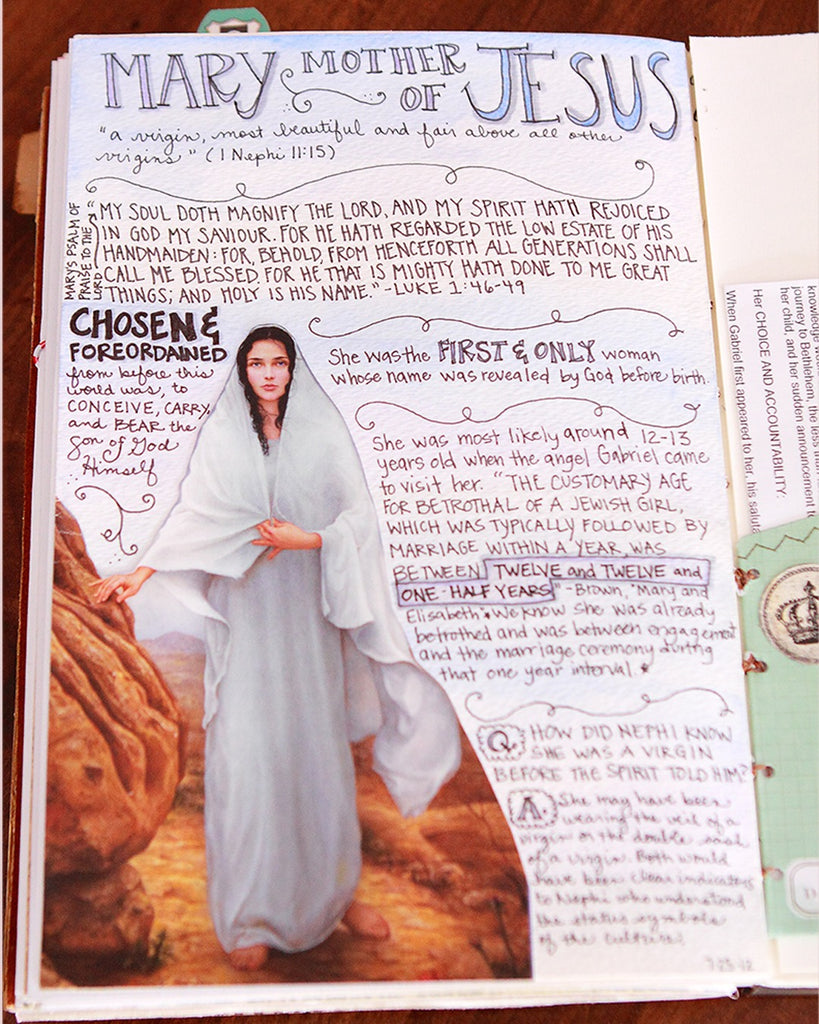 MARY MOTHER OF JESUS
"a virgin, most beautiful and fair above all other
virgins" (1 Nephi 11:15)
MARY'S PSALM OF
PRAISE TO THE
LORD
"MY SOUL DOTH MAGNIFY THE LORD, AND MY SPIRIT HATH REJOICED
IN GOD MY SAVIOUR. FOR HE HATH REGARDED THE LOW ESTATE OF HIS
HANDMAIDEN: FOR, BEHOLD, FROM HENCEFORTH ALL GENERATIONS SHALL
CALL ME BLESSED. FOR HE THAT IS MIGHTY HATH DONE TO ME GREAT
THINGS; AND HOLY IS HIS NAME." -LUKE 1:46-49
CHOSEN &
FOREORDAINED
from before this
world was, to
CONCEIVE, CARRY,
and BEAR the
Son of God
Himself
She was the FIRST & ONLY woman
whose name was revealed by God before birth.
She was most likely around 12-13
years old when the angel Gabriel came
to visit her. "THE CUSTOMARY AGE
FOR BETROTHAL OF A JEWISH GIRL,
WHICH WAS TYPICALLY FOLLOWED BY
MARRIAGE WITHIN A YEAR, WAS
BETWEEN TWELVE and TWELVE and
ONE-HALF YEARS" -Brown, "Mary and
Elisabeth" *We know she was already
betrothed and was between engagement
and the marriage ceremony during
that one year interval.*
Q. HOW DID NEPHI KNOW
SHE WAS A VIRGIN
BEFORE THE SPIRIT TOLD HIM?
A. She may have been
wearing the veil of a
virgin or the double sash
of a virgin. Both would
have been clear indicators
to Nephi who understood
the status symbols
of the culture!
7-23-12
knowledge
journey to Bethlehem, the less than
her child, and her sudden announcement
Her CHOICE AND ACCOUNTABILITY:
When Gabriel first appeared to her, his